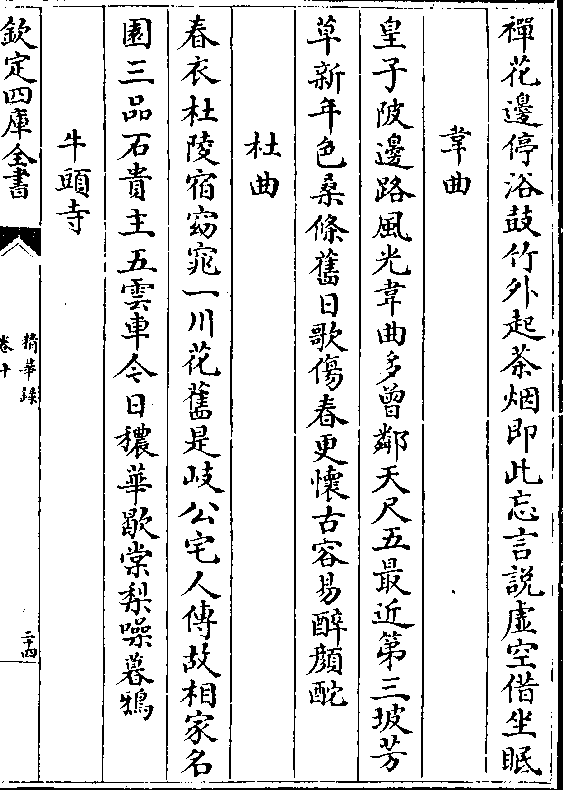 禪花邊停浴鼓竹外起茶烟即此忘言說虛空借坐眠
韋曲
皇子陂邊路風光韋曲多曾鄰天尺五最近第三坡芳
草新年色桑條舊日歌傷春更懷古容易醉顏酡
杜曲
春衣杜陵宿窈窕一川花舊是岐公宅人傳故相家名
園三品石貴主五雲車今日穠華歇棠梨噪暮鴉
牛頭寺
欽定四庫全書
精華錄
卷十
二十四